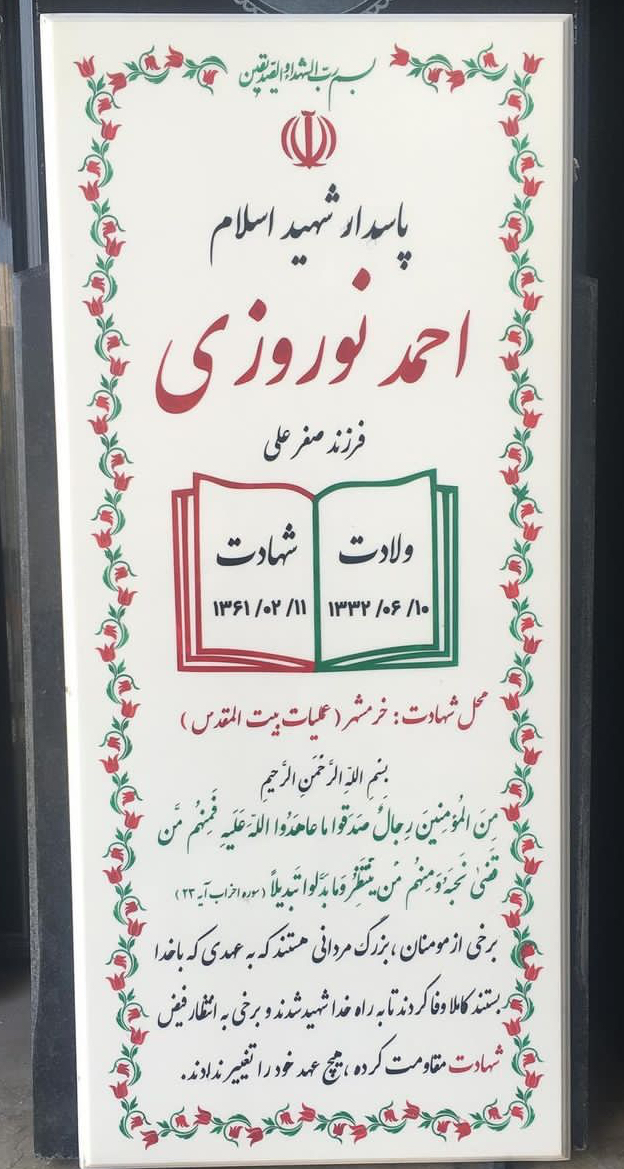 بسم رب الشهداء والصدیقین
پاسدار شهید اسلام
احمد نوروزی
فرزند صفر علی
ولادت
۱۳۳۲/۰۶/۱۰
شهادت
۱۳۶۱/۰۲/۱۱
محل شهادت: خرمشهر (عملیات بیت المقدس)
بِسْمِ اللهِ الرَّحْمَنِ الرَّحِیمِ
مِنَ الْمُؤْمِنِینَ رِجَالٌ صَدَقُوا مَا عَاهَدُوا اللَّهَ عَلَیْهِ فَمِنْهُم مَّن
قَضَى نَحْبَهُ وَمِنْهُم مَّن یَنتَظِرُ وَمَا بَدَّلُوا تَبْدِیلاً (سوره احزاب آیه ۲۳)
برخی از مومنان، بزرگ مردانی هستند که به عهدی که با خدا
بستند کاملا وفا کردند تا به راه خدا شهید شدند و برخی به انتظار فیض
شهادت مقاومت کرده، هیچ عهد خود را تغییر ندادند.